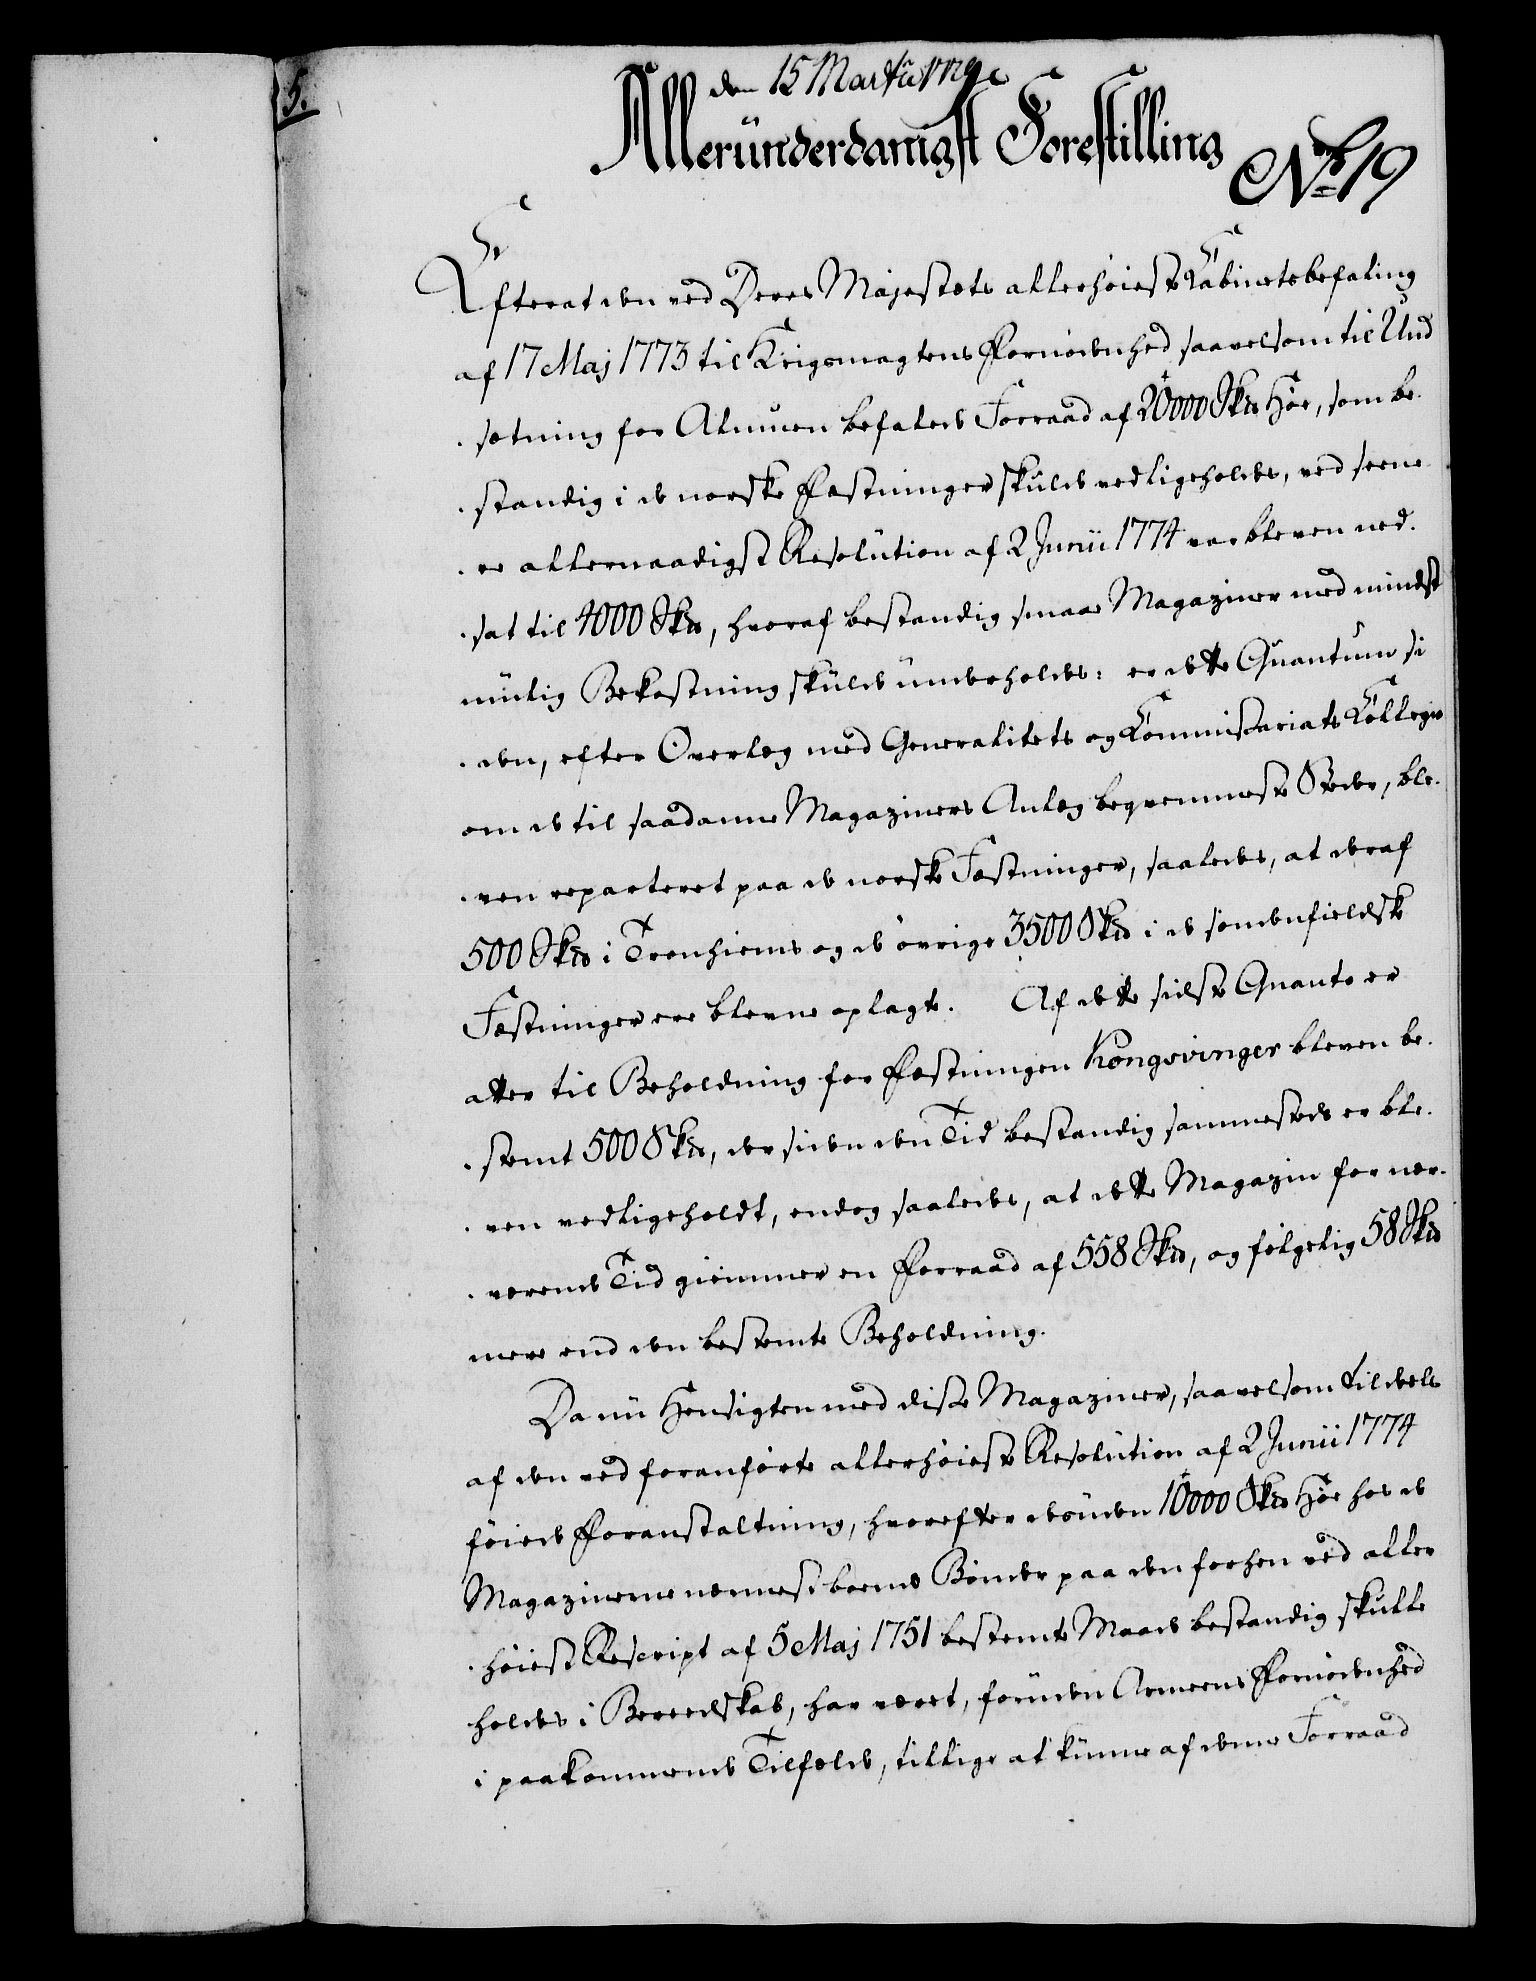 5.
den 15 Martii 179
Allerúnderdanigst Forestilling
No 19
Efterat den ved Deres Majestets allerhöieste Kabinetsbefaling
af 17 Maj 1773 til Krigsmagtens Fornödenhed saavelsom til Und
sætning for Almuen befalede Forraad af 20000 Skd Höe, som be-
standig i de norske Fæstninger skulde vedligeholdes, ved seene-
re allernaadigst Resolútion af 2 Junii 1774 var bleven ned-
sat til 4000 Skd, hvoraf bestandig smaae Magaziner med mindst
múlig Bekostning skúlde únderholdes: er dette Quantum si
den, efter Overlæg med Generalitets og Kommissariats Kollegio
om de til saadanne Magaziners Anlæg beqvemmeste Stæder, ble-
ven reparteret paa de norske Fæstninger, saaledes, at deraf
500 Skd i Tronhiems og de övrige 3500 Skd i de söndenfieldske
Fæstninger ere blevne oplagte. Af dette sidste Quanto er
atter til Beholdning for Fæstningen Kongsvinger bleven be-
stemt 500 Skd, der siden den Tid bestandig sammesteds er ble-
ven vedligeholdt, endog saaledes, at dette Magazin for nær-
værende Tid giemmer en Forraad af 558 Skd, og fölgelig 58 Skd
mere end den bestemte Beholdning.
Da nú Hensigten med disse Magaziner, saavelsom tildeels
af den ved foranförte allerhöieste Resolútion af 2 Junii 1774
föiede Foranstaltning, hvorefter desúden 10000 Skd Höe hos de
Magazinerne nærmest boende Bönder paa den forhen ved aller
höiest Rescript af 5 Maj 1751 bestemte Maade bestandig skulle
holdes i Beredskab, har været, forúden Armeens Fornödenhed
i paakommende Tilfælde, tillige at kúnne af denne Forraad